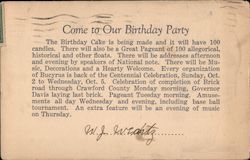 Come to Our Birthday Party
The Birthday Cake is being made and it will have 100
candles. There will also be a Great Pageant of 100 allegorical,
historical and other floats. There will be addresses afternoon
and evening by speakers of National note. There will be Mu-
sic, Decorations and a Hearty Welcome. Every organization
of Bucyrus is back of the Centennial Celebration, Sunday, Oct.
2 to Wednesday, Oct. 5. Celebration of completion of Brick
road through Crawford County Monday morning, Governor
Davis laying last brick. Pageant Tuesday morning. Amuse-
ments all day Wednesday and evening, including base ball
tournament. An extra feature will be an evening of music
on Thursday.
W. J.